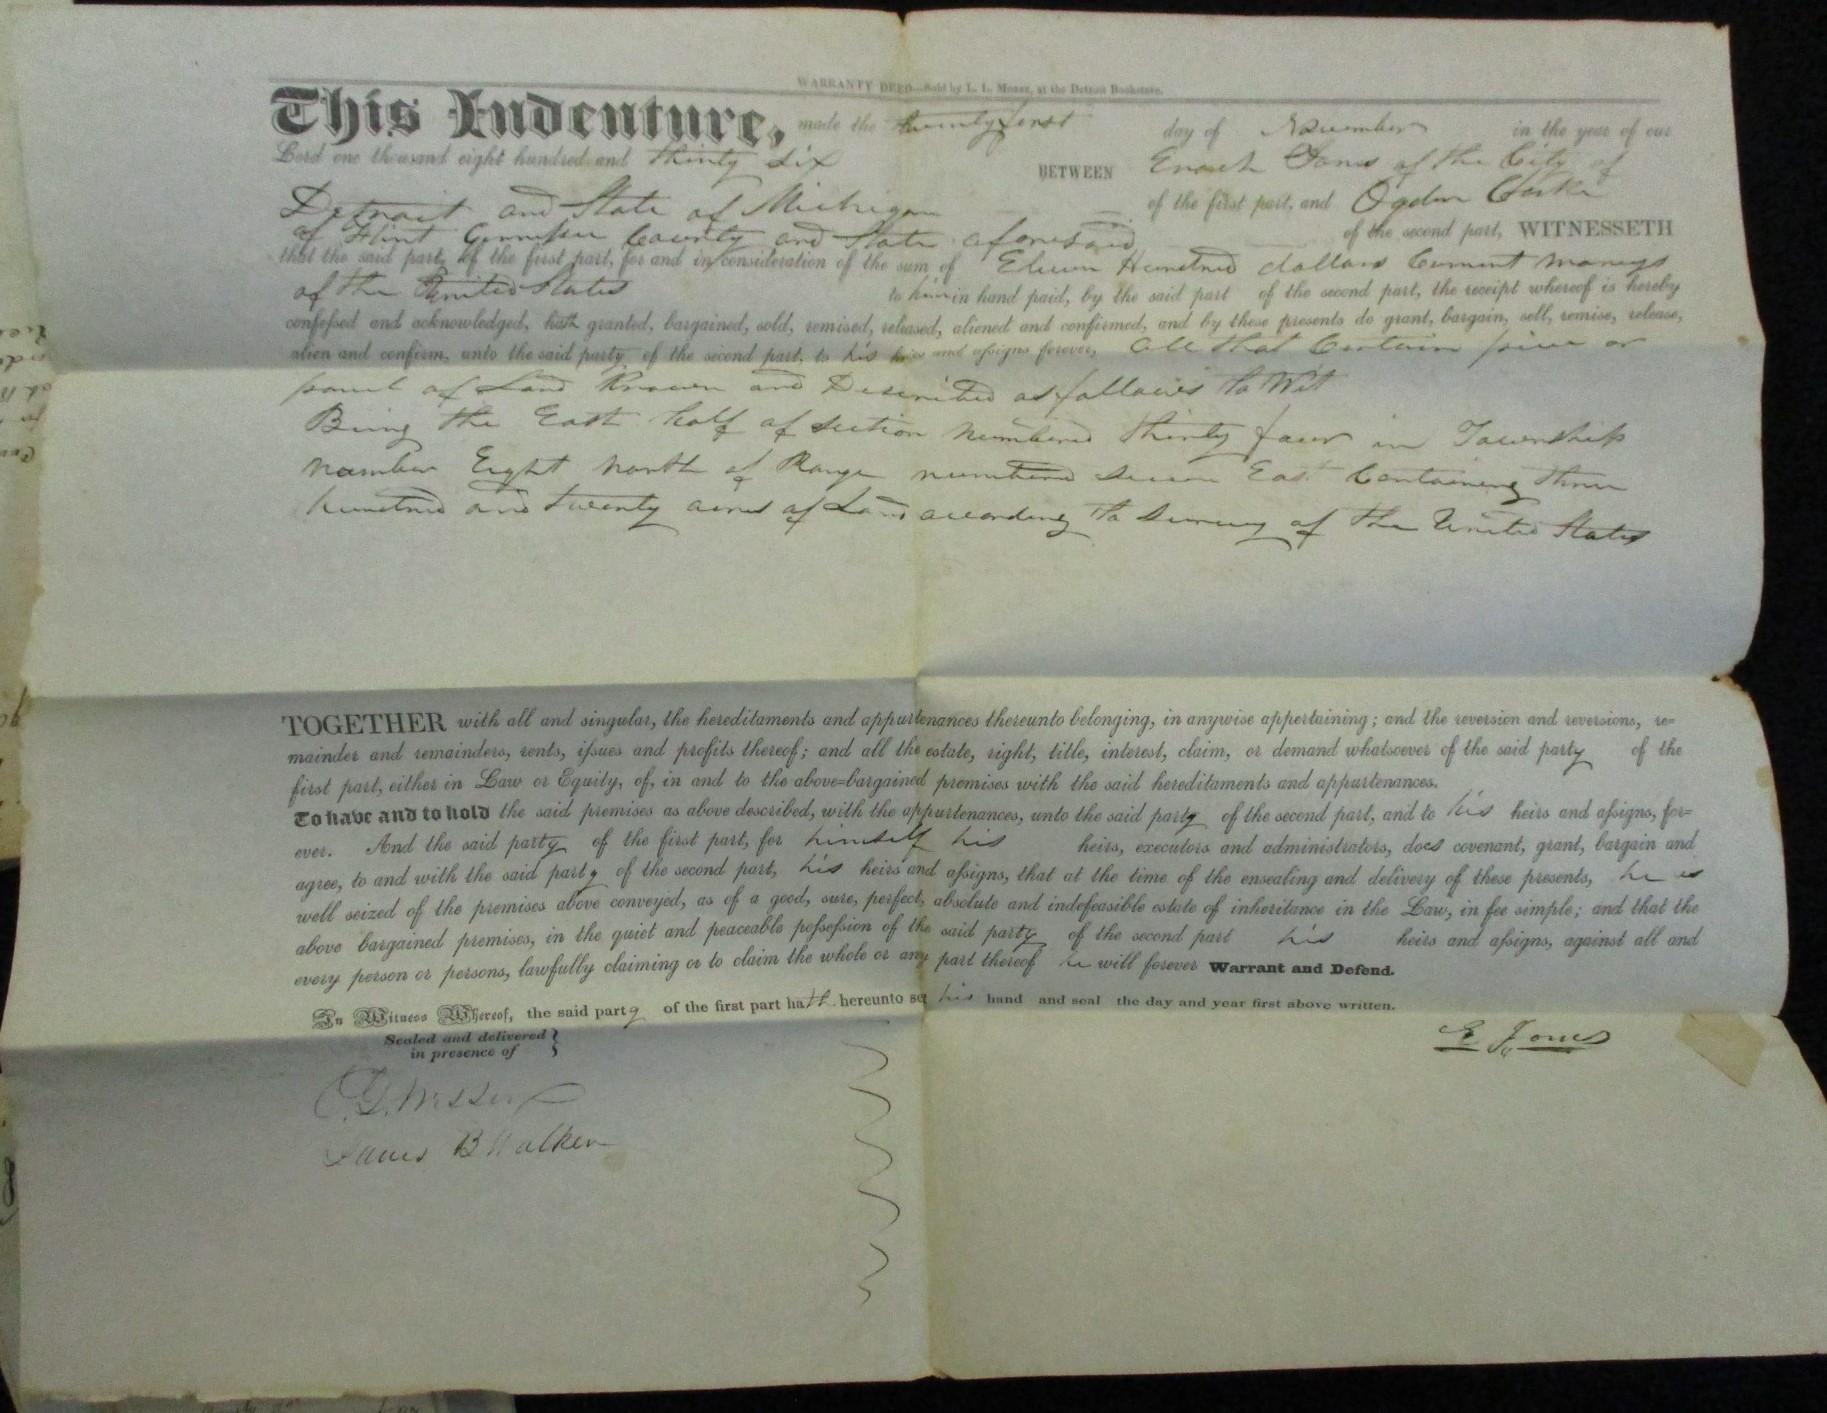 WARRANTY DEED—Sold by L. L. Morse, at the Detroit Bookstore.
This Indenture, made the twenty first day of November in the year of our
Lord one thousand eight hundred and thirty six BETWEEN Enoch Jones of the City of
Detroit and State of Michigan of the first part, and Ogden Clarke
of Flint Gennesee County and State aforesaid of the second part, WITNESSETH
that the said party of the first part, for and in consideration of the sum of Eleven Hundred dollars Current money
of the United States to him in hand paid, by the said part of the second part, the receipt whereof is hereby
confessed and acknowledged, hath granted, bargained, sold, remised, released, aliened and confirmed, and by these presents do grant, bargain, sell, remise, release,
alien and confirm, unto the said party of the second part, to his heirs and assigns forever, All that Certain piece or
parcel of Land Known and Described as follows to Wit
Being the East half of section numbered thirty four in Township
number Eight north of Range numbered seven East Containing three
hundred and twenty acres of Land according to Survey of the United States
TOGETHER with all and singular, the hereditaments and appurtenances thereunto belonging, in anywise appertaining; and the reversion and reversions, re=
mainder and remainders, rents, issues and profits thereof; and all the estate, right, title, interest, claim, or demand whatsoever of the said party of the
first part, either in Law or Equity, of, in and to the above=bargained premises with the said hereditaments and appurtenances.
To have and to hold the said premises as above described, with the appurtenances, unto the said party of the second part, and to his heirs and assigns, for=
ever. And the said party of the first part, for himself his heirs, executors and administrators, does covenant, grant, bargain and
agree, to and with the said party of the second part, his heirs and assigns, that at the time of the ensealing and delivery of these presents, he is
well seized of the premises above conveyed, as of a good, sure, perfect, absolute and indefeasible estate of inheritance in the Law, in fee simple; and that the
above bargained premises, in the quiet and peaceable possession of the said party of the second part his heirs and assigns, against all and
every person or persons, lawfully claiming or to claim the whole or any part thereof he will forever Warrant and Defend.
In Witness Whereof, the said party of the first part hath hereunto set his hand and seal the day and year first above written.
Sealed and delivered
in presence of
E Jones
James B Walker